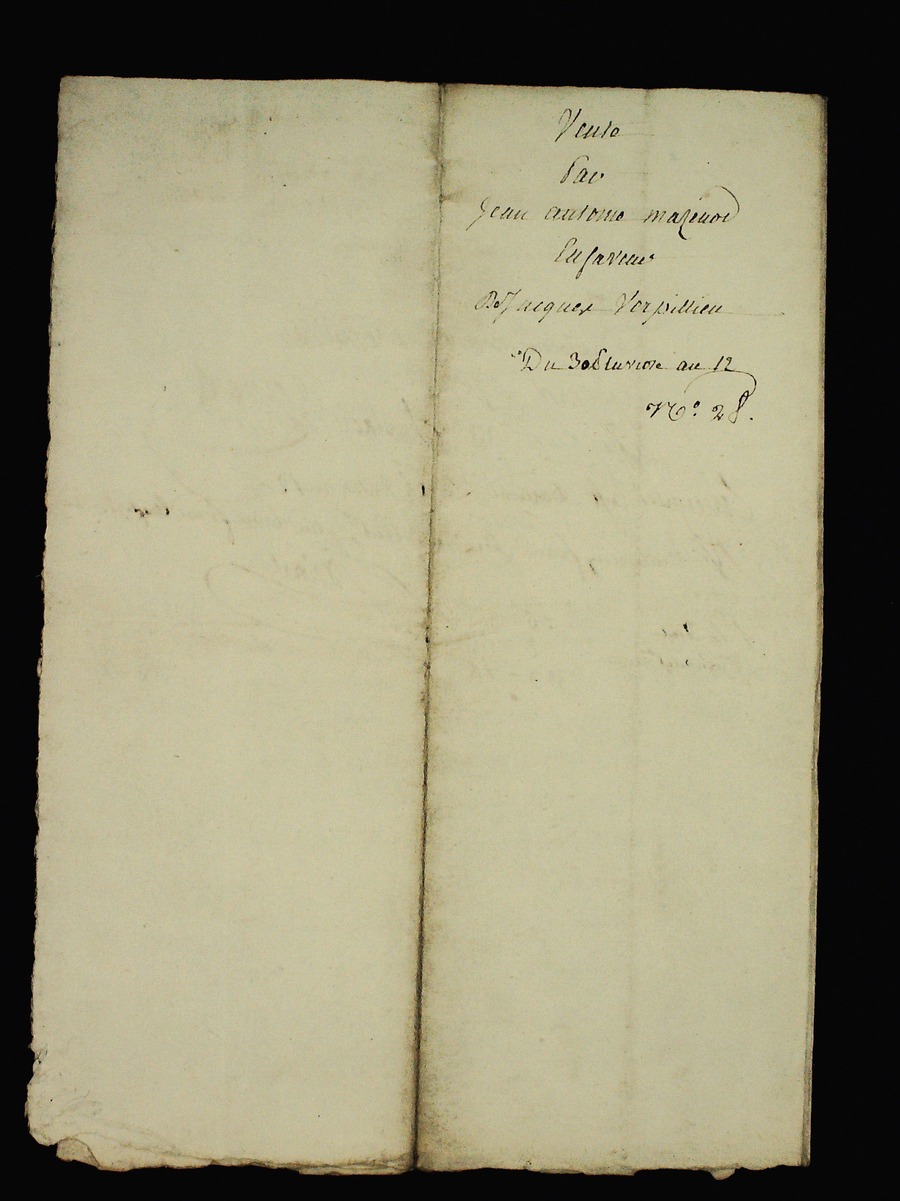 Vente
Par
Jean antoine mazenod
En faveur
De Jacques Verpillieu
Du 30 Pluviose an 12
N.° 28.